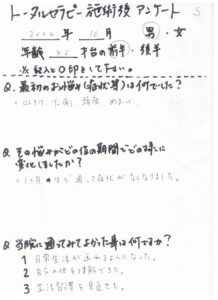 トータルセラピー施術後アンケート
S
2024年 10月 男・女
年齢 40才台の前半・後半
※記入と○印をして下さい。
Q.最初のお悩み(症状等)は何でしたか?
下痢 頭痛 めまい
Q.その悩みがどの位の期間でどの様に
変化しましたか?
ほど通って症状がなくなりました。
Q.当院に通ってみてよかった事は何ですか?
1 日常生活が送れるようになった。
2 自分の体を理解できた。
3 生活習慣を見直せた。